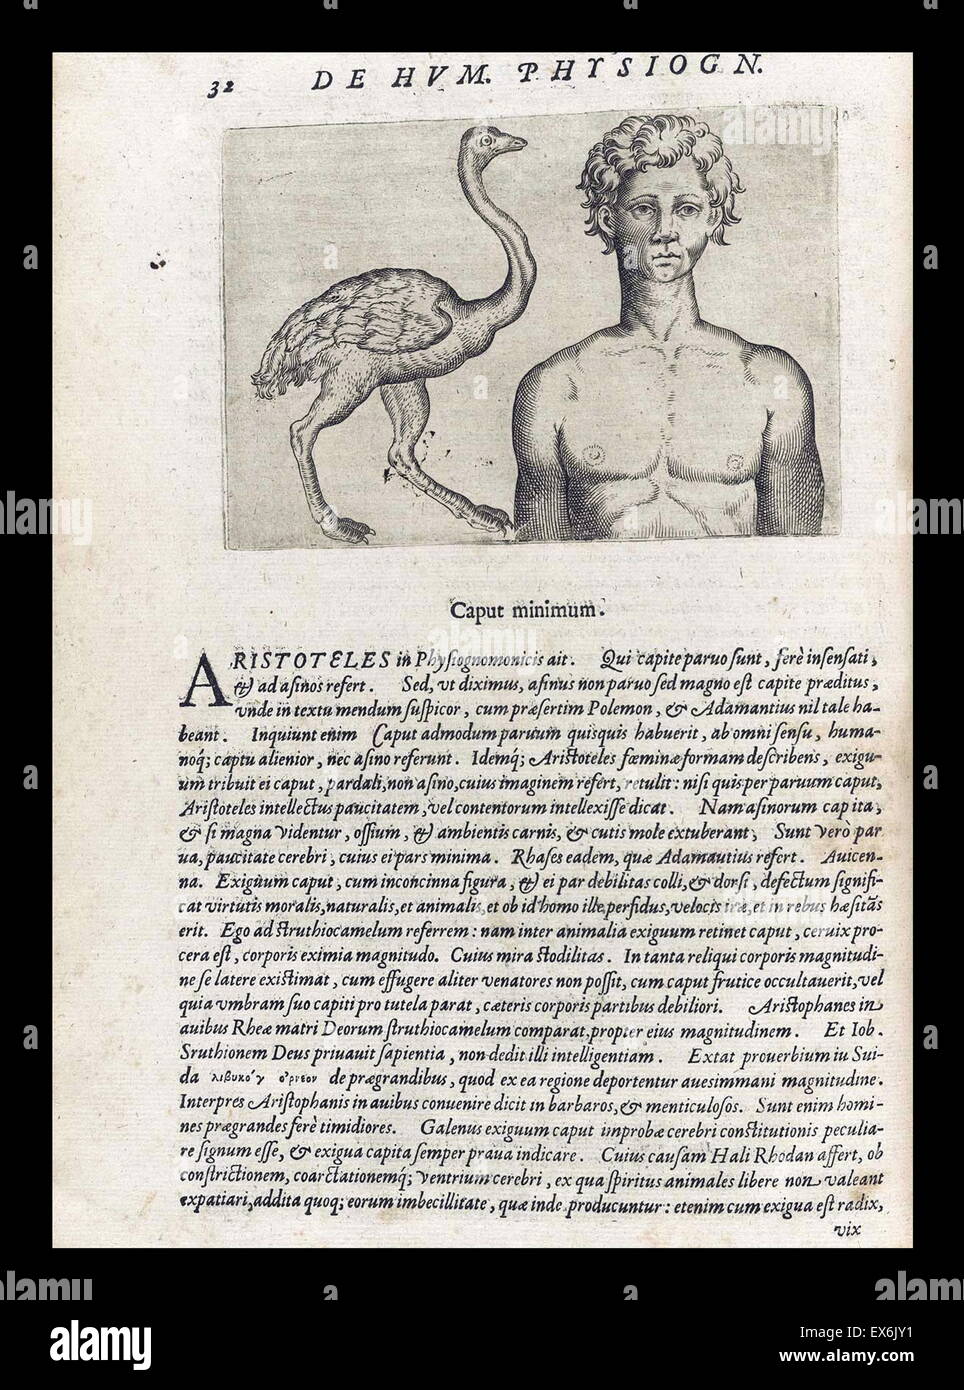 32 DE HVM. PHYSIOGN.
Caput minimum.
ARISTOTELES in Physiognomonicis ait. Qui capite paruo sunt, ferè insensati,
& ad asinos refert. Sed, vt diximus, asinus non paruo sed magno est capite præditus,
vnde in textu mendum suspicor, cum præsertim Polemon, & Adamantius nil tale ha-
beant. Inquiunt enim Caput admodum paruum quisquis habuerit, ab omni sensu, huma-
noq; captu alienior, nec asino referunt. Idemq; Aristoteles fœminæ formam describens, exigu-
um tribuit ei caput, pardali, non asino, cuius imaginem refert, retulit: nisi quis per paruum caput,
Aristoteles intellectus paucitatem, vel contentorum intellexisse dicat. Nam asinorum capita,
& si magna videntur, ossium, & ambientis carnis, & cutis mole extuberant, Sunt verò par
ua, paucitate cerebri, cuius ei pars minima. Rhases eadem, quæ Adamautius refert. Auicen-
na. Exiguum caput, cum inconcinna figura, & ei par debilitas colli, & dorsi, defectum signifi-
cat virtutis moralis, naturalis, et animalis, et ob id homo ille, perfidus, velocis iræ, et in rebus hæsitãs
erit. Ego ad struthiocamelum referrem: nam inter animalia exiguum retinet caput, ceruix pro-
cera est, corporis eximia magnitudo. Cuius mira stoditas. In tanta reliqui corporis magnitudi-
ne se latere existimat, cum effugere aliter venatores non possit, cum caput frutice occultauerit, vel
quia vmbram suo capiti pro tutela parat, cæteris corporis partibus debiliori. Aristophanes in
auibus Rheæ matri Deorum struthiocamelum comparat, propter eius magnitudinem. Et Iob.
Sruthionem Deus priuauit sapientia, non dedit illi intelligentiam. Extat prouerbium iu Sui-
da de prægrandibus, quod ex ea regione deportentur aues immani magnitudine.
Interpres Aristophanis in auibus conuenire dicit in barbaros, & menticulosos. Sunt enim homi-
nes prægrandes ferè timidiores. Galenus exiguum caput improbæ cerebri constitutionis peculia-
re signum esse, & exigua capita semper praua indicare. Cuius causam Hali Rhodan affert, ob
constrictionem, coarctationemq; ventrium cerebri, ex qua spiritus animales libere non valeant
expatiari, addita quoq; eorum imbecillitate, quæ inde producuntur: etenim cum exigua est radix,
vix
alamy
a
alamy stock photo
EX6JY1
www.alamy.com